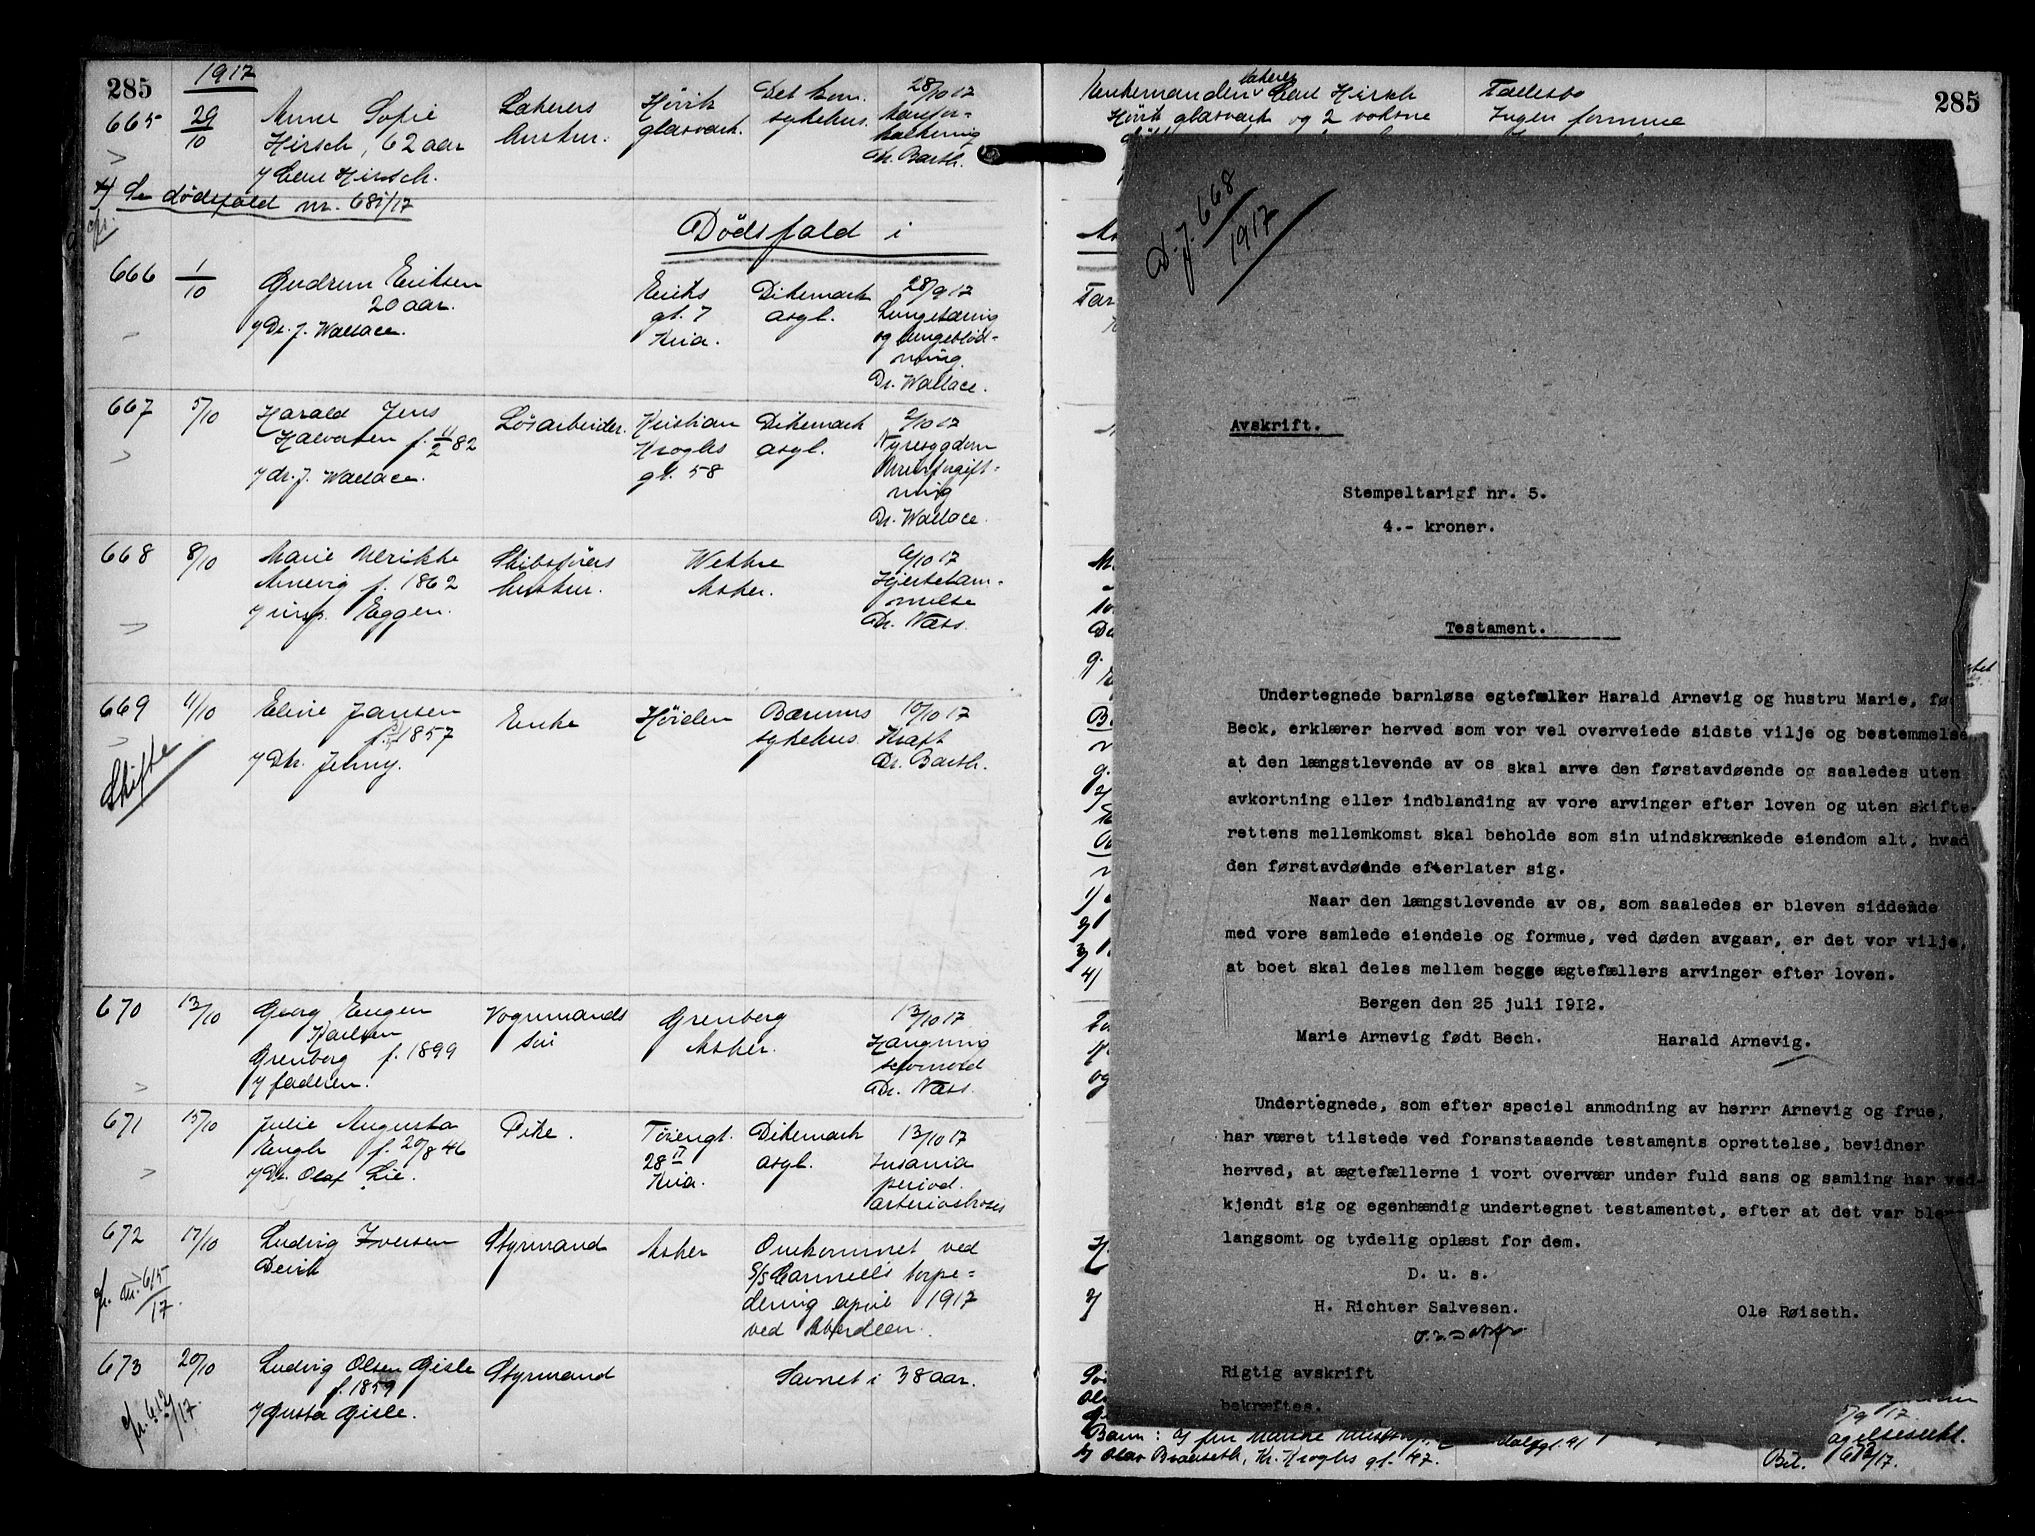 285
1917
665
29/10
Anne Sofie
Hirsch, 62 aar
v/ Carl Hirsch.
hustru.
Høvik
glasverk.
Det kom.
sykehus.
28/10 17
Dr. Barth.
Se dødsfald nr. 681/17
Dødsfald i
666
1/10
Gudrun Eriksen
20 aar.
v/ Dr. J. Wallace.
Eriks
gt. 7
Kria.
Dikemark
asyl.
28/9 17
Lungetæring
og lungeblød-
ning
Dr. Wallace.
667
5/10
Harald Jens
Halvorsen f. 11/2 82
v/ dr. J. Wallace.
Løsarbeider.
Kristian
Kroghs
gt. 58
Dikemark
asyl.
2/10 17
Nyresygdom
Urinforgift-
ning
Dr. Wallace.
668
8/10
Marie Ulrikke
Arnevig f. 1862
v/ insp. Eggen.
Skibsførers
hustru.
Wettre
Asker.
6/10 17
Hjertelam-
melse
Dr. Næss.
669
11/10
Skifte
Eline Jansen
f. 1857
v/ Dtr. Jenny.
Enke
Høiden
Bærums
sykehus
10/10 17
Kræft
Dr. Barth.
670
13/10
Georg Eugen
Karlsen
Grenberg f. 1899
v/ faderen.
Vognmands
søn
Grenberg
Asker.
13/10 17
Hængning
selvmord
Dr. Næss.
671
15/10
Julie Augusta
Engh f. 20/8 46
v/ Dr. Olaf Lie.
Pike.
Tøiengt.
28 II
Kria.
Dikemark
asyl.
13/10 17
Insania
period.
arteriosklerosis
672
17/10
cfr. nr. 615/17.
Ludvig Iversen
Devik
Styrmand
Asker
Omkommet ved
S/S Camillas torpe=
dering april 1917
ved Aberdeen.
673
20/10
cfr. 612/17.
Ludvig Olsen Gisle
f. 1859
v/ Gusta Gisle.
Styrmand
Savnet i 38 aar.
285
Enkemanden Carl Hirsch
Høvik glasverk og 2 voksne
Fællesbo
Ingen formue
D. J. 668
1917
Avskrift.
Stempeltarigf nr. 5.
4.- kroner.
Testament.
Undertegnede barnløse egtefælker Harald Arnevig og hustru Marie, fø
Beck, erklærer herved som vor vel overveiede sidste vilje og bestemmelse
at den længstlevende av os skal arve den førstavdøende og saaledes uten
avkortning eller indblanding av vore arvinger efter loven og uten skifte-
rettens mellemkomst skal beholde som sin uindskrænkede eiendom alt, hvad
den førstavdøende efterlater sig.
Naar den længstlevende av os, som saaledes er bleven siddende
med vore samlede eiendele og formue, ved døden avgaar, er det vor vilje,
at boet skal deles mellem begge ægtefællers arvinger efter loven.
Bergen den 25 juli 1912.
Marie Arnevig født Bech.
Harald Arnevig.
Undertegnede, som efter speciel anmodning av herrr Arnevig og frue,
har været tilstede ved foranstaaende testaments oprettelse, bevidner
herved, at ægtefællerne i vort overvær under fuld sans og samling har ved-
kjendt sig og egenhændig undertegnet testamentet, efter at det var ble
langsomt og tydelig oplæst for dem.
D. u. s.
H. Richter Salvesen.
Ole Røiseth.
Rigtig avskrift
bekræftes.
Barn:
Olav Braaseth, Kr. Kroghs gt. 47.
Bil. 673/17.